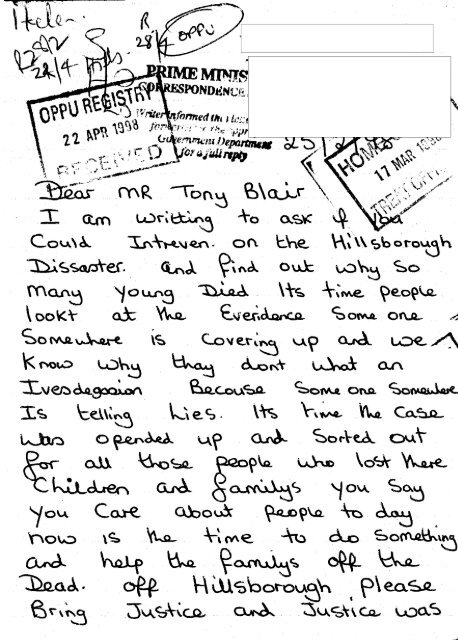 Helen.
R
28/4
OPPU
22/4
PRIME MINIS
CORRESPONDENCE
Writer informed
Government Department
for a full reply
OPPU REGISTRY
22 APR 1998
RECEIVED
17 MAR 1998
Dear MR Tony Blair
I am writting to ask if you
Could Intreven. on the Hillsborough
Dissaster. and find out why so
many young Died Its time people
lookt at the Everidence Some one
Somewhere is covering up and we
Know why thay dont what an
Ivesdegosion Becouse Some one Somewhere
Is telling Lies. Its time the case
was opended up and Sorted out
for all those people who lost there
Children and familys you Say
you Care about people to day
now is the time to do Something
and help the familys off the
Dead. off Hillsborough please
Bring Justice and Justice was